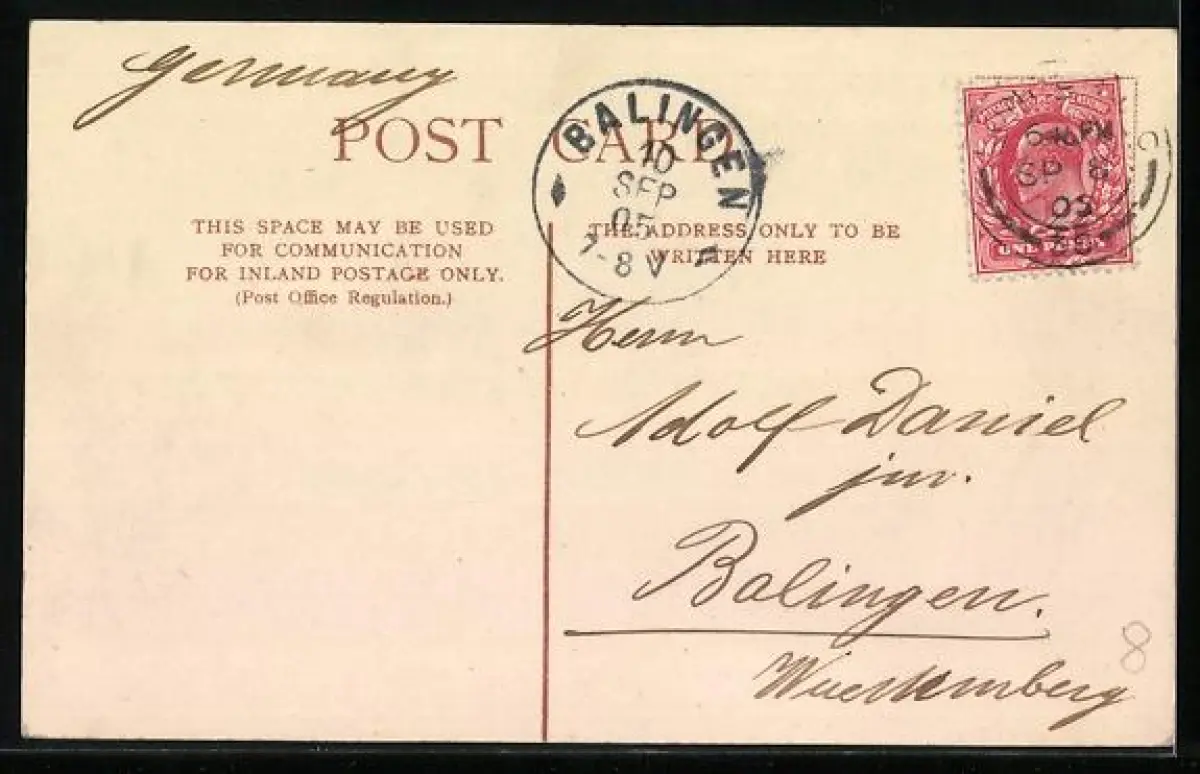 Germany
POST CARD
THIS SPACE MAY BE USED
FOR COMMUNICATION
FOR INLAND POSTAGE ONLY.
(Post Office Regulation.)
THE ADDRESS ONLY TO BE
WRITTEN HERE
BALINGEN
10
SEP
05
7-8 V
PM
SP 8
05
Herrn
Adolf Daniel
jur.
Balingen.
Wuerttemberg
8